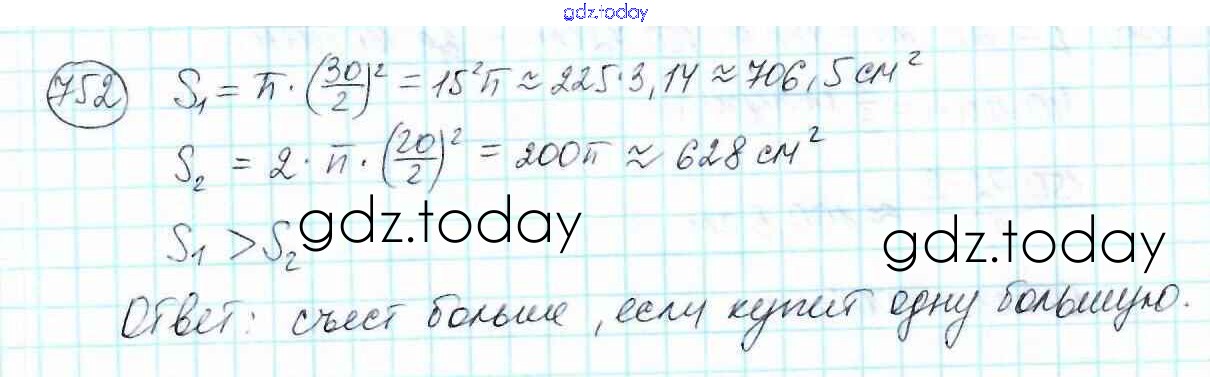 gdz.today
752 S₁ = π · (30/2)² = 15²π ≈ 225·3,14 ≈ 706,5 см²
S₂ = 2 · π · (20/2)² = 200π ≈ 628 см²
S₁ > S₂
gdz.today
gdz.today
Ответ: съест больше, если купит одну большую.